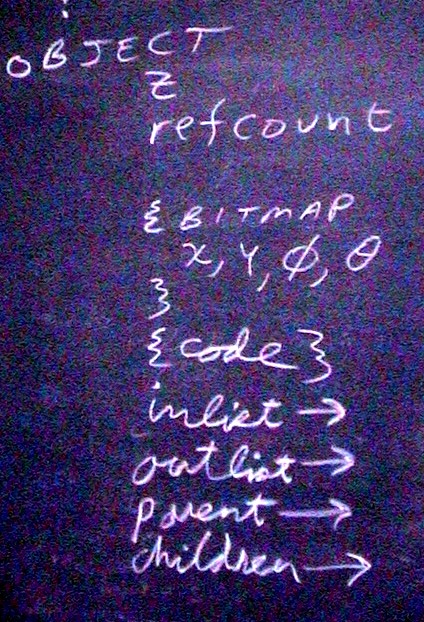 OBJECT
Z
refcount
{ BITMAP
X, Y, ϕ, θ
}
{code}
inlist →
outlist →
parent →
children →